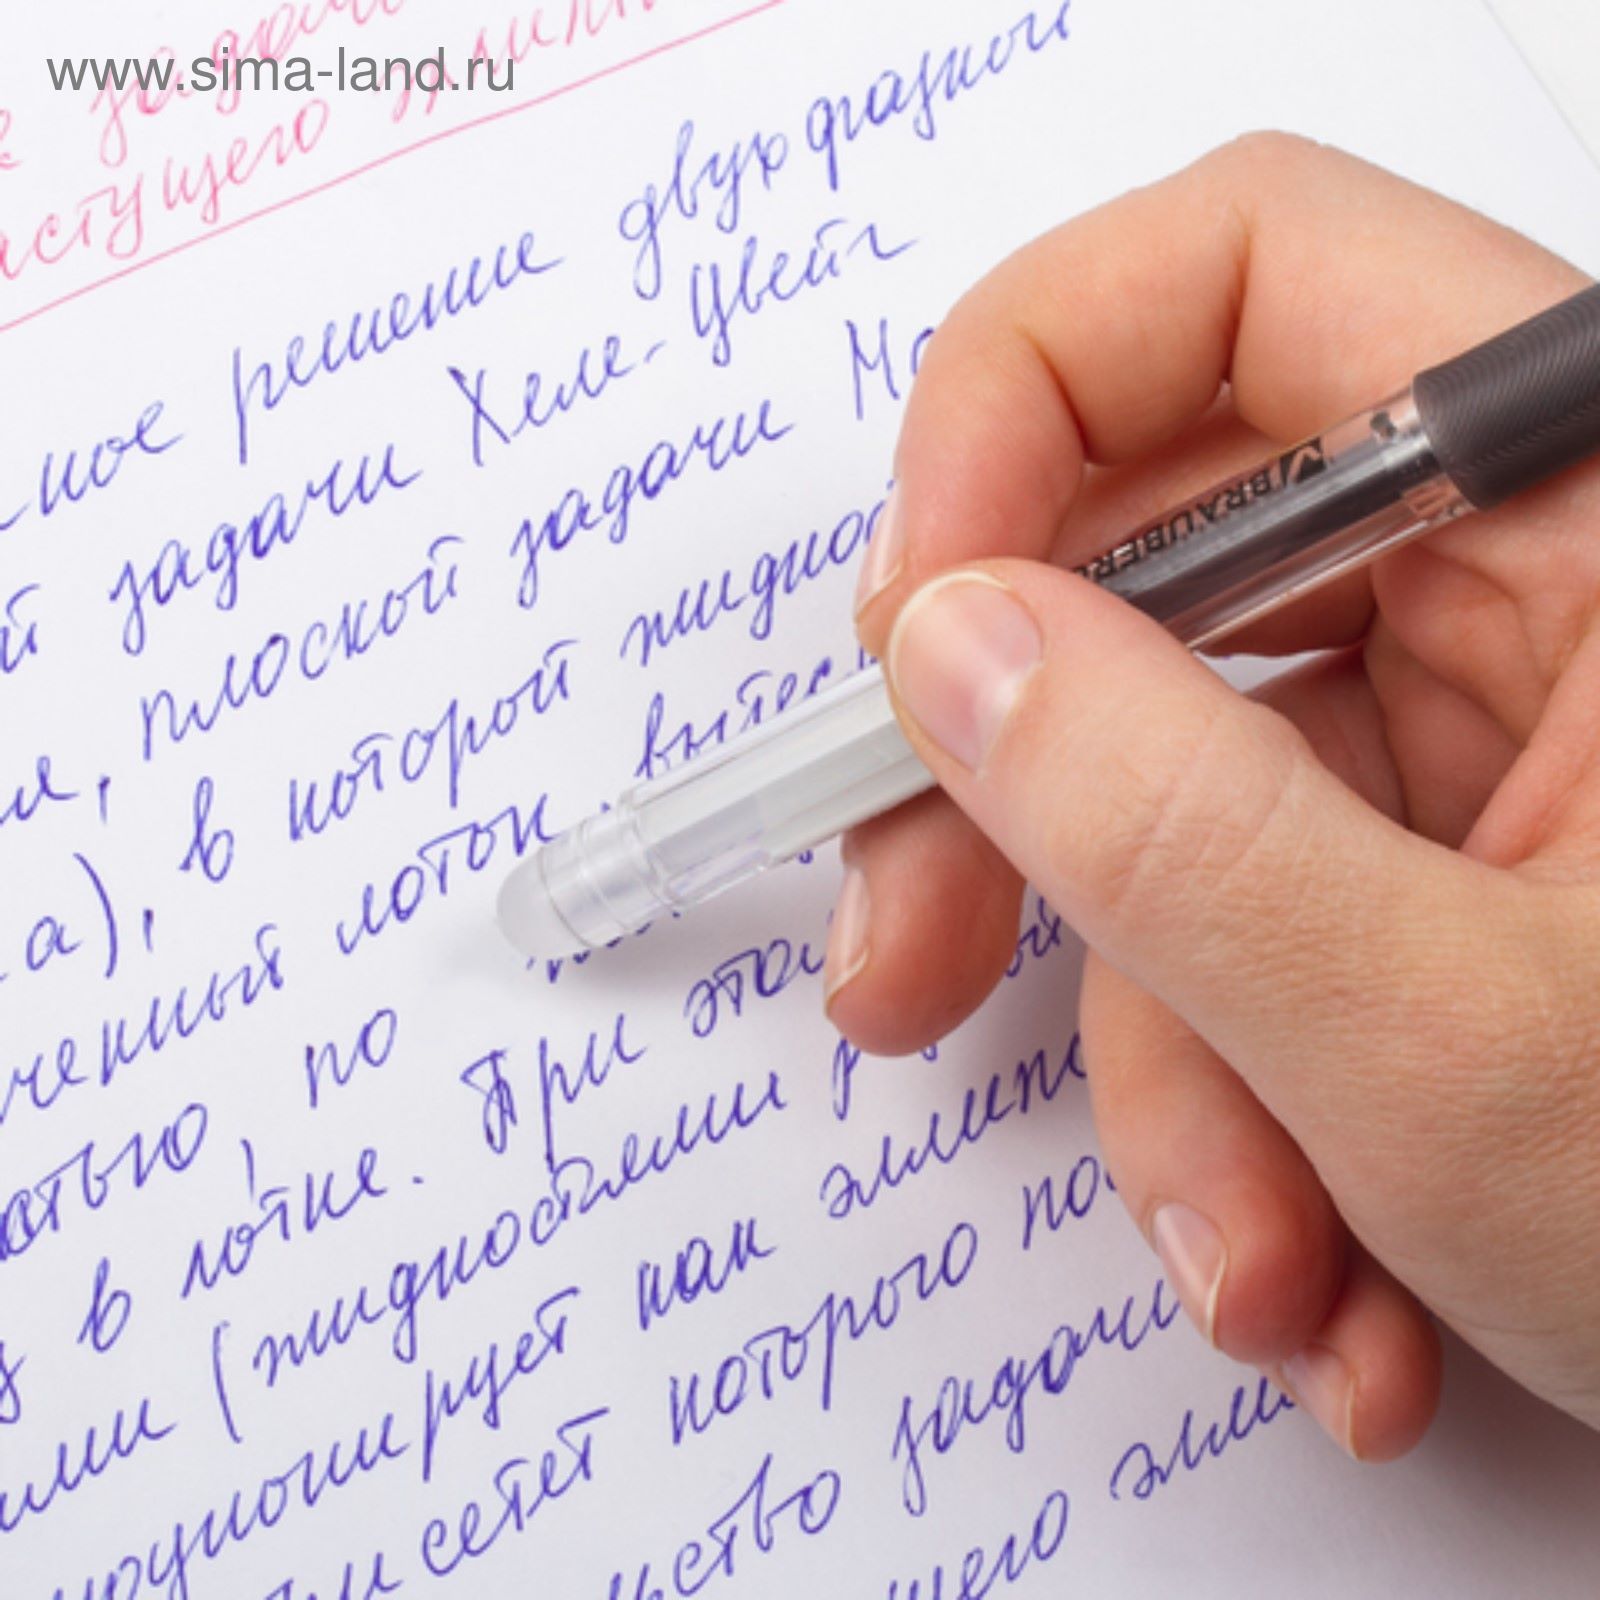 www.sima-land.ru
задач
астущего эллип
ное решение двухфазной
й задачи Хеле-Цвейг
ия, плоской задачи Мо
ка), в которой жидкос
ченный лоток, вытес
остью, по
у в лотке. При этом
ыми (жидкостями) р ый
прционирует как эллипс
ри сетет которого по
ьство задачи
щего элли
BRAUBERG